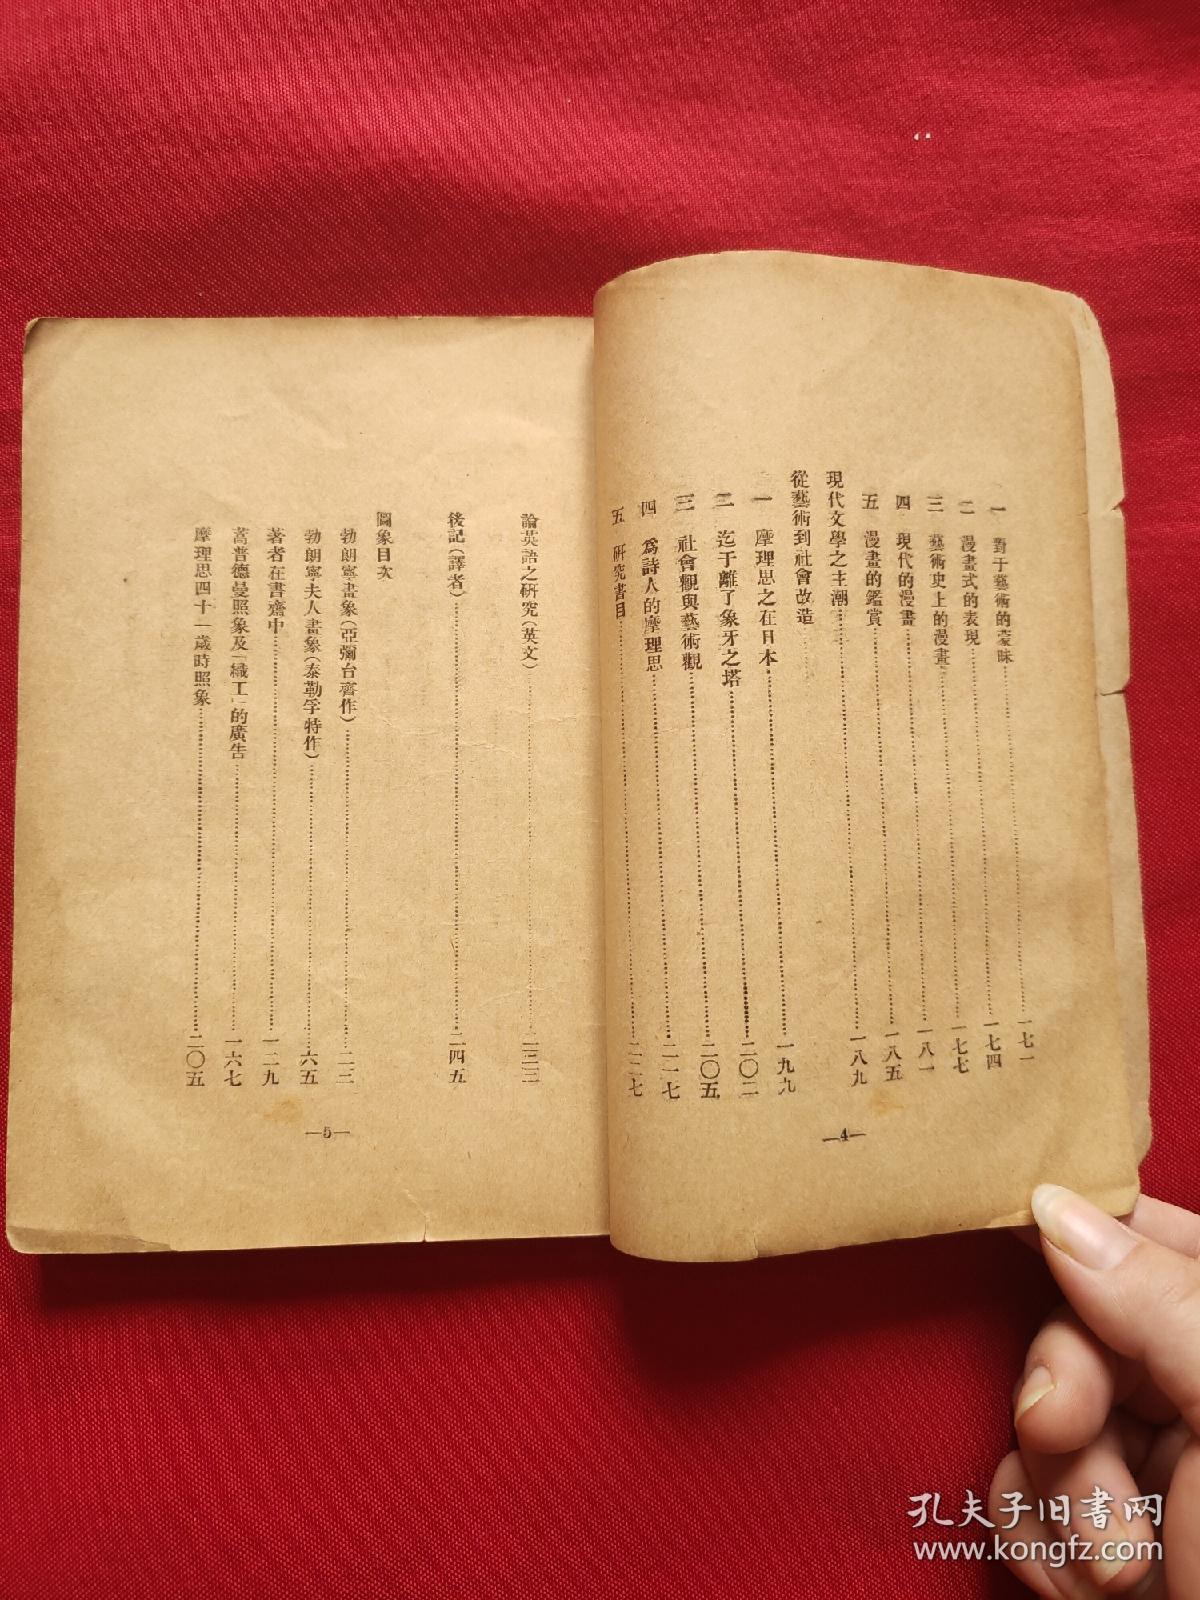 一 對于藝術的蒙昧……一七一
二 漫畫式的表現……一七四
三 藝術史上的漫畫……一七七
四 現代的漫畫……一八一
五 漫畫的鑑賞……一八五
現代文學之主潮……一八九
從藝術到社會改造……
一 摩理思之在日本……一九九
二 迄于離了象牙之塔……二〇二
三 社會觀與藝術觀……二〇五
四 爲詩人的摩理思……二一七
五 研究書目……二二七
—4—
論英語之研究(英文)……二三三
後記(譯者)……二四五
圖象目次
勃朗寧畫象(亞彌台齊作)……二三
勃朗寧夫人畫象(泰勒孚特作)……六五
著者在書齋中……一二九
蒿普德曼照象及「織工」的廣告……一六七
摩理思四十一歲時照象……二〇五
—5—
孔夫子旧书网
www.kongfz.com